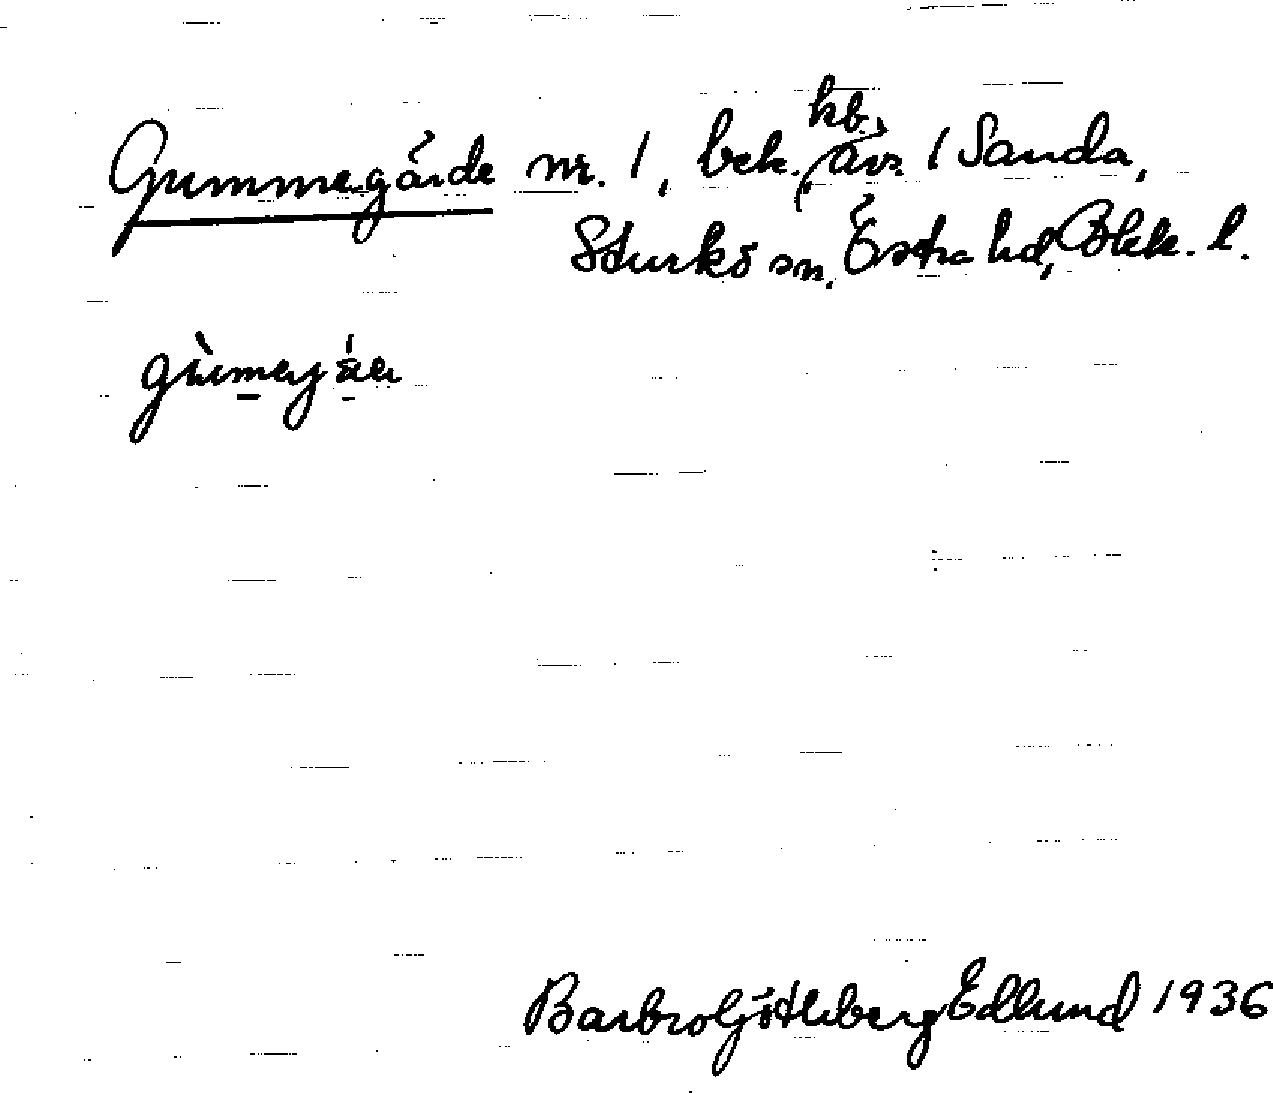 Gummegärde nr. 1, bek. kb. avs. 1 Sanda,
Sturkö sn, Östra hd, Blek. l.
Barbro Götleberg Edlund 1936